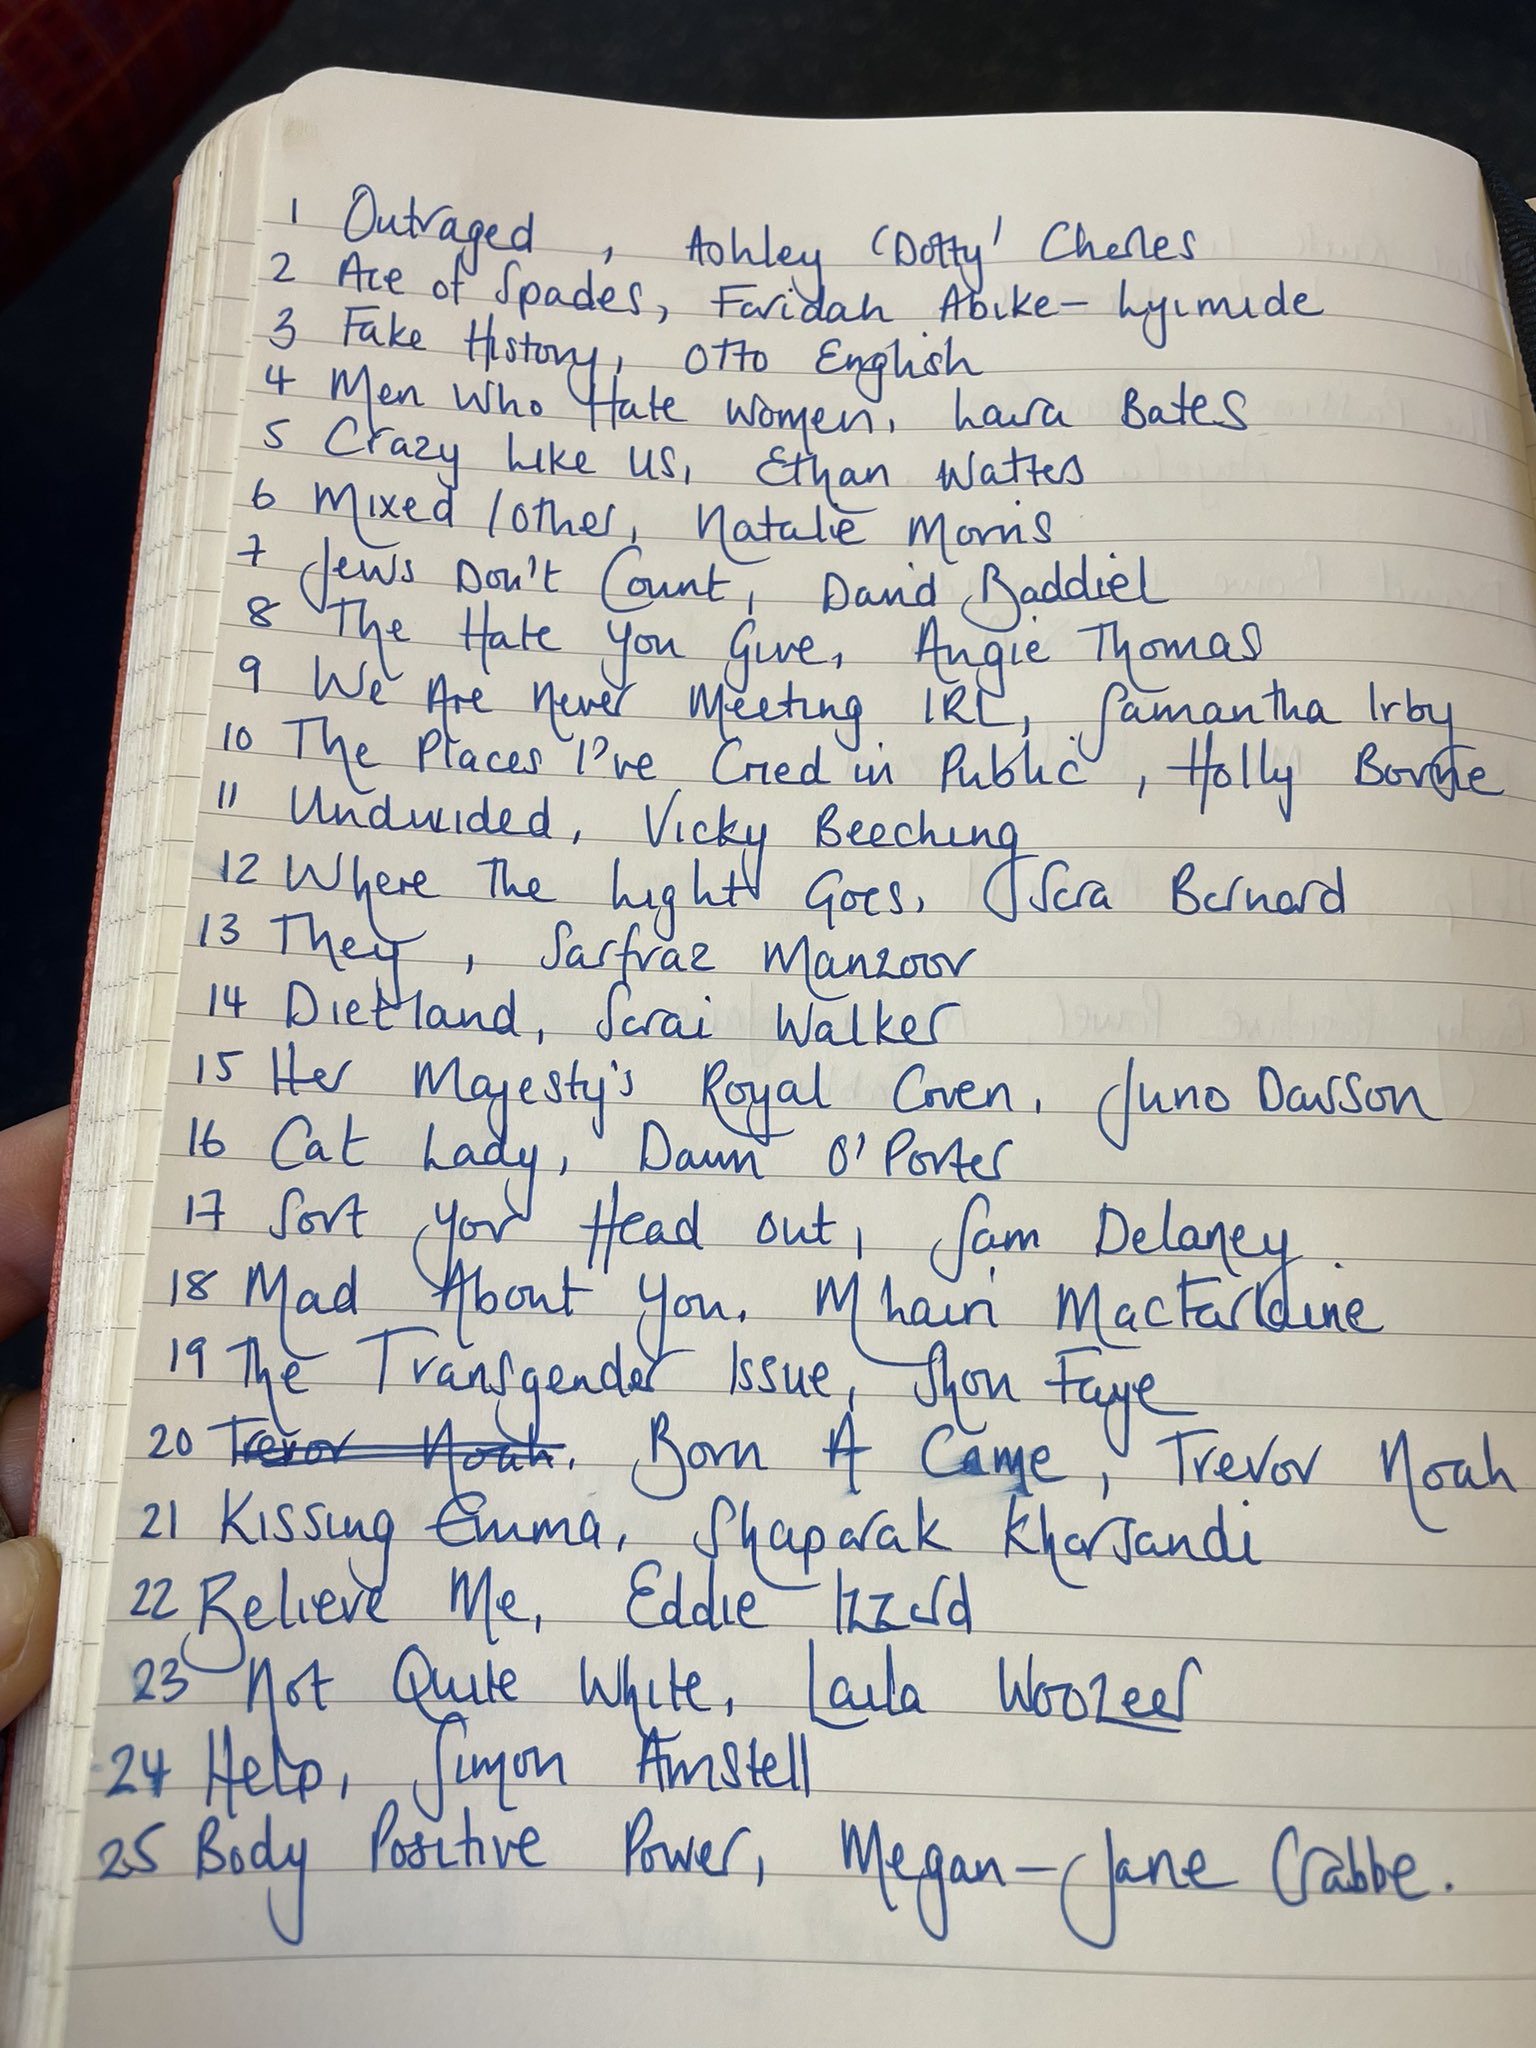 1 Outraged, Ashley 'Dotty' Charles
2 Ace of Spades, Faridah Abike-Iyimide
3 Fake History, Otto English
4 Men Who Hate Women, Laura Bates
5 Crazy Like Us, Ethan Watters
6 Mixed/Other, Natalie Morris
7 Jews Don't Count, David Baddiel
8 The Hate You Give, Angie Thomas
9 We Are Never Meeting IRL, Samantha Irby
10 The Places I've Cried in Public, Holly Borne
11 Undivided, Vicky Beeching
12 Where The Light Goes, Sara Barnard
13 They, Sarfraz Manzoor
14 Dietland, Sarai Walker
15 Her Majesty's Royal Coven, Juno Dawson
16 Cat Lady, Dawn O'Porter
17 Sort Your Head Out, Sam Delaney
18 Mad About You, Mhairi MacFarlane
19 The Transgender Issue, Shon Faye
20 Trevor Noah. Born A Crime, Trevor Noah
21 Kissing Emma, Shaparak Khorsandi
22 Believe Me, Eddie Izzard
23 Not Quite White, Laila Woozeer
24 Help, Simon Amstell
25 Body Positive Power, Megan-Jane Crabbe.